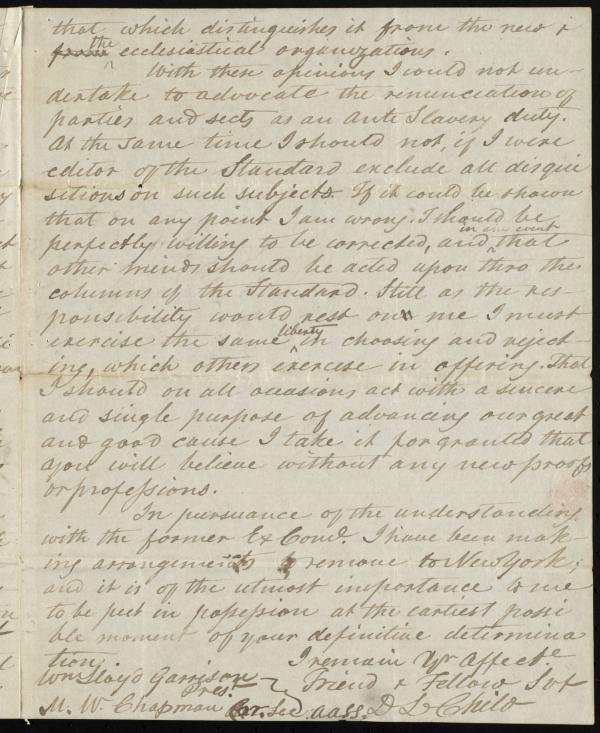 that which distinguishes it from the new &
from the ecclesiastical organizations.
With these opinions I would not un-
dertake to advocate the renunciation of
parties and sects as an Anti Slavery duty.
At the same time I should not, if I were
editor of the Standard exclude all disqui
sitions on such subjects. If it could be shown
that on any point I am wrong. I should be
perfectly willing to be corrected, and in any event that
other minds should be acted upon thro the
columns of the Standard. Still as the res-
ponsibility would rest on me I must
exercise the same liberty in choosing and reject-
ing, which others exercise in offering. That
I should on all occasions act with a sincere
and single purpose of advancing our great
and good cause I take it for granted that
you will believe without any new proofs
or professions.
In pursuance of the understanding
with the former Ex Comd. I have been mak-
ing arrangements to remove to New York;
and it is of the utmost importance to me
to be put in possession at the earliest possi
ble moment of your definitive determina
tion. I remain Yr Affecte
Wm Lloyd Garrison Pres. Friend & Fellow Svt
M. W. Chapman Cor. Sec. aass. D L Child